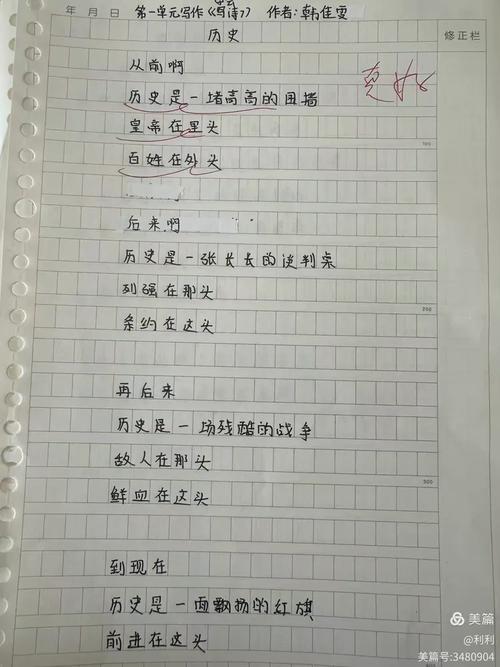 年 月 日 第一单元写作《写诗》 作者:韩佳雯
历史
修正栏
从前啊
历史是一堵高高的围墙
皇帝在里头
100
百姓在外头
后来啊
历史是一张长长的谈判桌
列强在那头
200
条约在这头
再后来
历史是一场残酷的战争
敌人在那头
300
鲜血在这头
到现在
历史是一面飘扬的红旗
前进在这头
美篇
@利利
美篇号:3480904